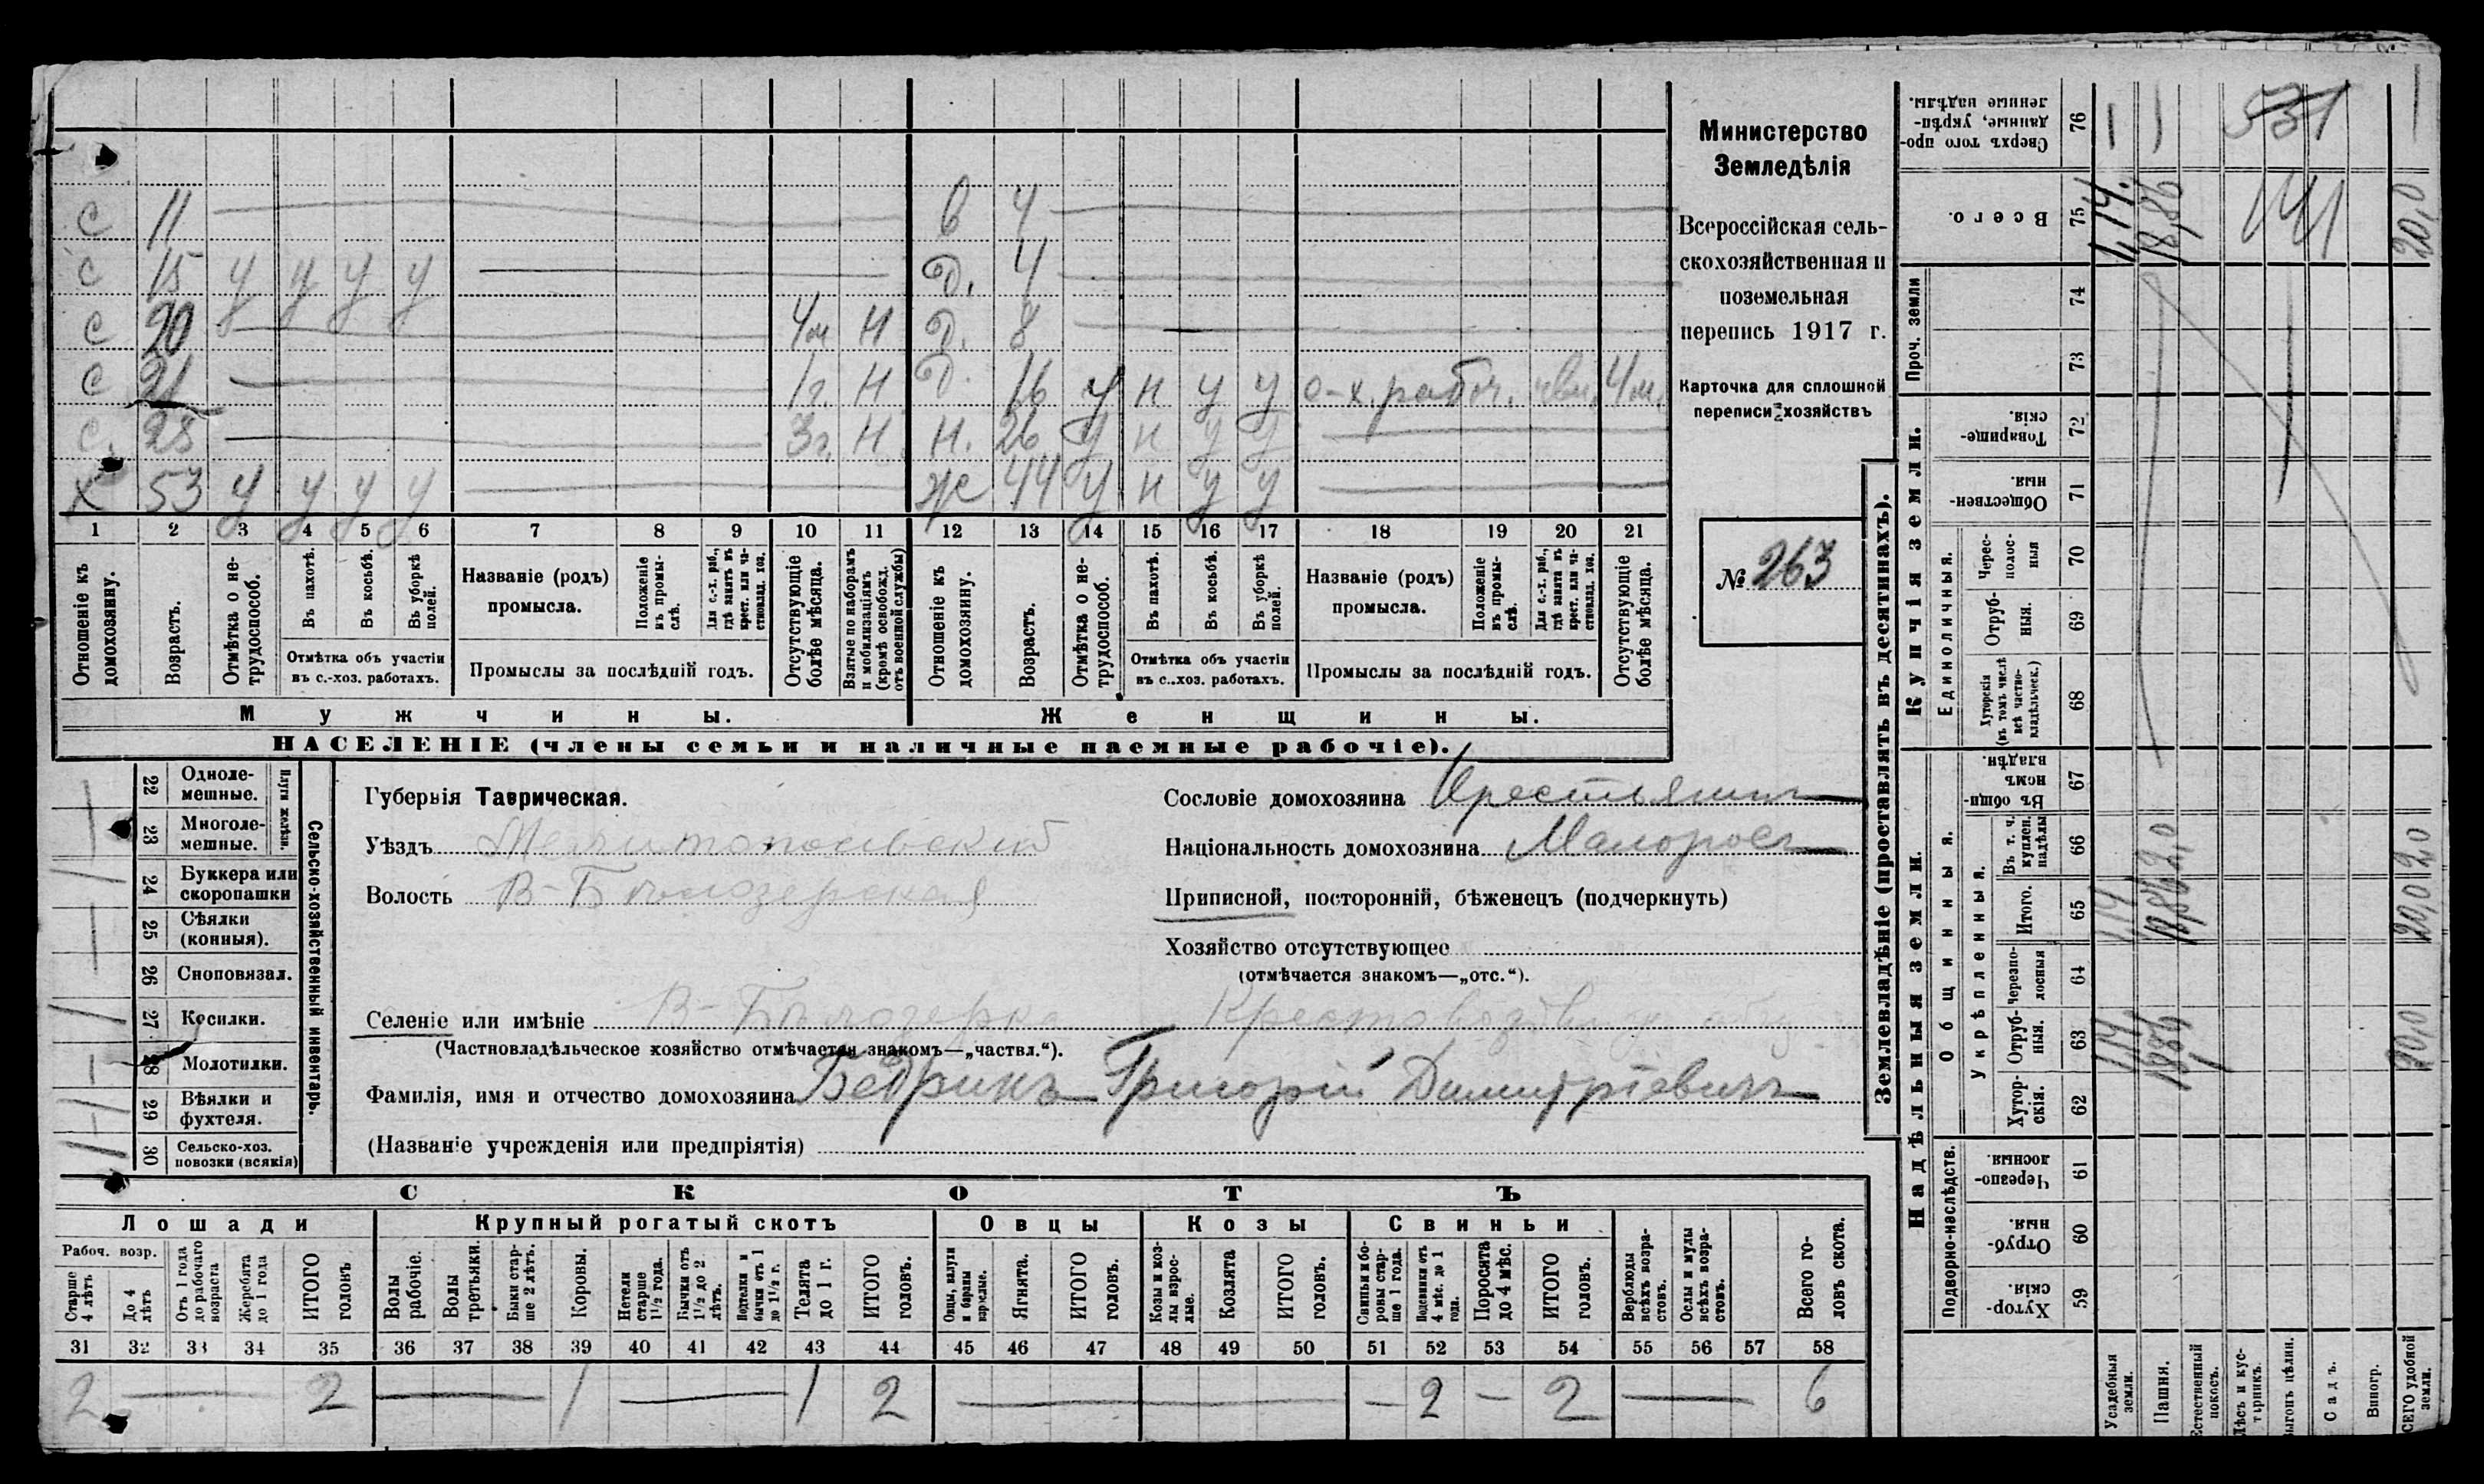 с 11 в 4
с 15 у у у у д. 4
с 20 4м Н д. 8
с 21 1г. Н д. 16 у н у у с-х. рабоч. 4м.
с. 28 3г. Н Н. 26 у н у у
х 53 у у у у ж 44 у н у у
1 2 3 4 5 6 7 8 9 10 11 12 13 14 15 16 17 18 19 20 21
Отношеніе къ домохозяину.
Возрастъ.
Отмѣтка о нетрудоспособ.
Въ пахотѣ.
Въ косьбѣ.
Въ уборкѣ полей.
Отмѣтка объ участіи
въ с.-хоз. работахъ.
Названіе (родъ)
промысла.
Положеніе въ промыслѣ.
Для с.-х. раб., гдѣ занятъ въ крест. или частновлад. хоз.
Промыслы за послѣдній годъ.
Отсутствующіе болѣе мѣсяца.
Взятые по наборамъ и мобилизаціямъ (кромѣ освобожд. отъ военной службы)
Отношеніе къ домохозяину.
Возрастъ.
Отмѣтка о нетрудоспособ.
Въ пахотѣ.
Въ косьбѣ.
Въ уборкѣ полей.
Отмѣтка объ участіи
въ с..хоз. работахъ.
Названіе (родъ)
промысла.
Положеніе въ промыслѣ.
Для с.-х. раб., гдѣ занятъ въ крест. или частновлад. хоз.
Промыслы за послѣдній годъ.
Отсутствующіе болѣе мѣсяца.
Мужчины. Женщины.
НАСЕЛЕНІЕ (члены семьи и наличные наемные рабочіе).
Министерство
Земледѣлія
Всероссійская сель-
скохозяйственная и
поземельная
перепись 1917 г.
Карточка для сплошной
переписи хозяйствъ
№ 263
Сельско-хозяйственный инвентарь.
Плуги желѣзн.
22 Одноле-
мешные.
23 Многоле-
мешные.
24 Буккера или
скоропашки
25 Сѣялки
(конныя).
26 Сноповязал.
27 Косилки.
28 Молотилки.
29 Вѣялки и
фухтеля.
30 Сельско-хоз.
повозки (всякія)
Губернія Таврическая.
Уѣздъ Мелитопольскій
Волость В-Бѣлозерская
Сословіе домохозяина Крестьянинъ
Національность домохозяина Малороссъ
Приписной, посторонній, бѣженецъ (подчеркнуть)
Хозяйство отсутствующее
(отмѣчается знакомъ—„отс.“).
Селеніе или имѣніе В-Бѣлозерка
(Частновладѣльческое хозяйство отмѣчается знакомъ—„частвл.“).
Фамилія, имя и отчество домохозяина Бедринъ Григорій Димитріевичъ
(Названіе учрежденія или предпріятія)
СКОТЪ
Лошади Крупный рогатый скотъ Овцы Козы Свиньи
Рабоч. возр.
Старше 4 лѣтъ
До 4 лѣтъ
Отъ 1 года до рабочаго возраста
Жеребята до 1 года
ИТОГО головъ
Волы рабочіе.
Волы третьяки.
Быки старше 2 лѣтъ.
Коровы.
Нетели старше 1½ года.
Бычки отъ 1½ до 2 лѣтъ.
Подтелки и бычки отъ 1 до 1½ г.
Телята до 1 г.
ИТОГО головъ.
Овцы, валухи и бараны взрослые.
Ягнята.
ИТОГО головъ.
Козы и козлы взрослые.
Козлята
ИТОГО головъ.
Свиньи и боровы старше 1 года.
Подсвинки отъ 4 мѣс. до 1 года.
Поросята до 4 мѣс.
ИТОГО головъ.
Верблюды всѣхъ возрастовъ.
Ослы и мулы всѣхъ возрастовъ.
Всего головъ скота.
31 32 33 34 35 36 37 38 39 40 41 42 43 44 45 46 47 48 49 50 51 52 53 54 55 56 57 58
2 — 2 — 1 — 1 2 — — 2 — 2 — 6
Землевладѣніе (проставлять въ десятинахъ).
Надѣльныя земли.
Купчія земли.
Проч. земли
Подворно-наслѣдств.
Общинныя.
Укрѣпленныя.
Единоличныя.
76 Сверхъ того проданные, укрѣпленные надѣлы. 531
75 Всего. 1,14. 18,86 141 20,0
74
73
72 Товарищескія.
71 Общественныя.
70 Чересполосныя
69 Отрубныя.
68 Хуторскія (въ томъ числѣ всѣ частновладѣльческ.)
67 Въ общинномъ владѣн.
66 Въ т. ч. куплен. надѣлы 2,0 2,0
65 Итого. 1,14 18,86 20,0
64 Черезполосныя
63 Отрубныя. 1,14 18,86 20,0
62 Хуторскія.
61 Черезполосныя.
60 Отрубныя.
59 Хуторскія
Усадебныя земли.
Пашня.
Естественный покосъ.
Лѣсъ и кустарникъ.
Садъ.
Виногр.